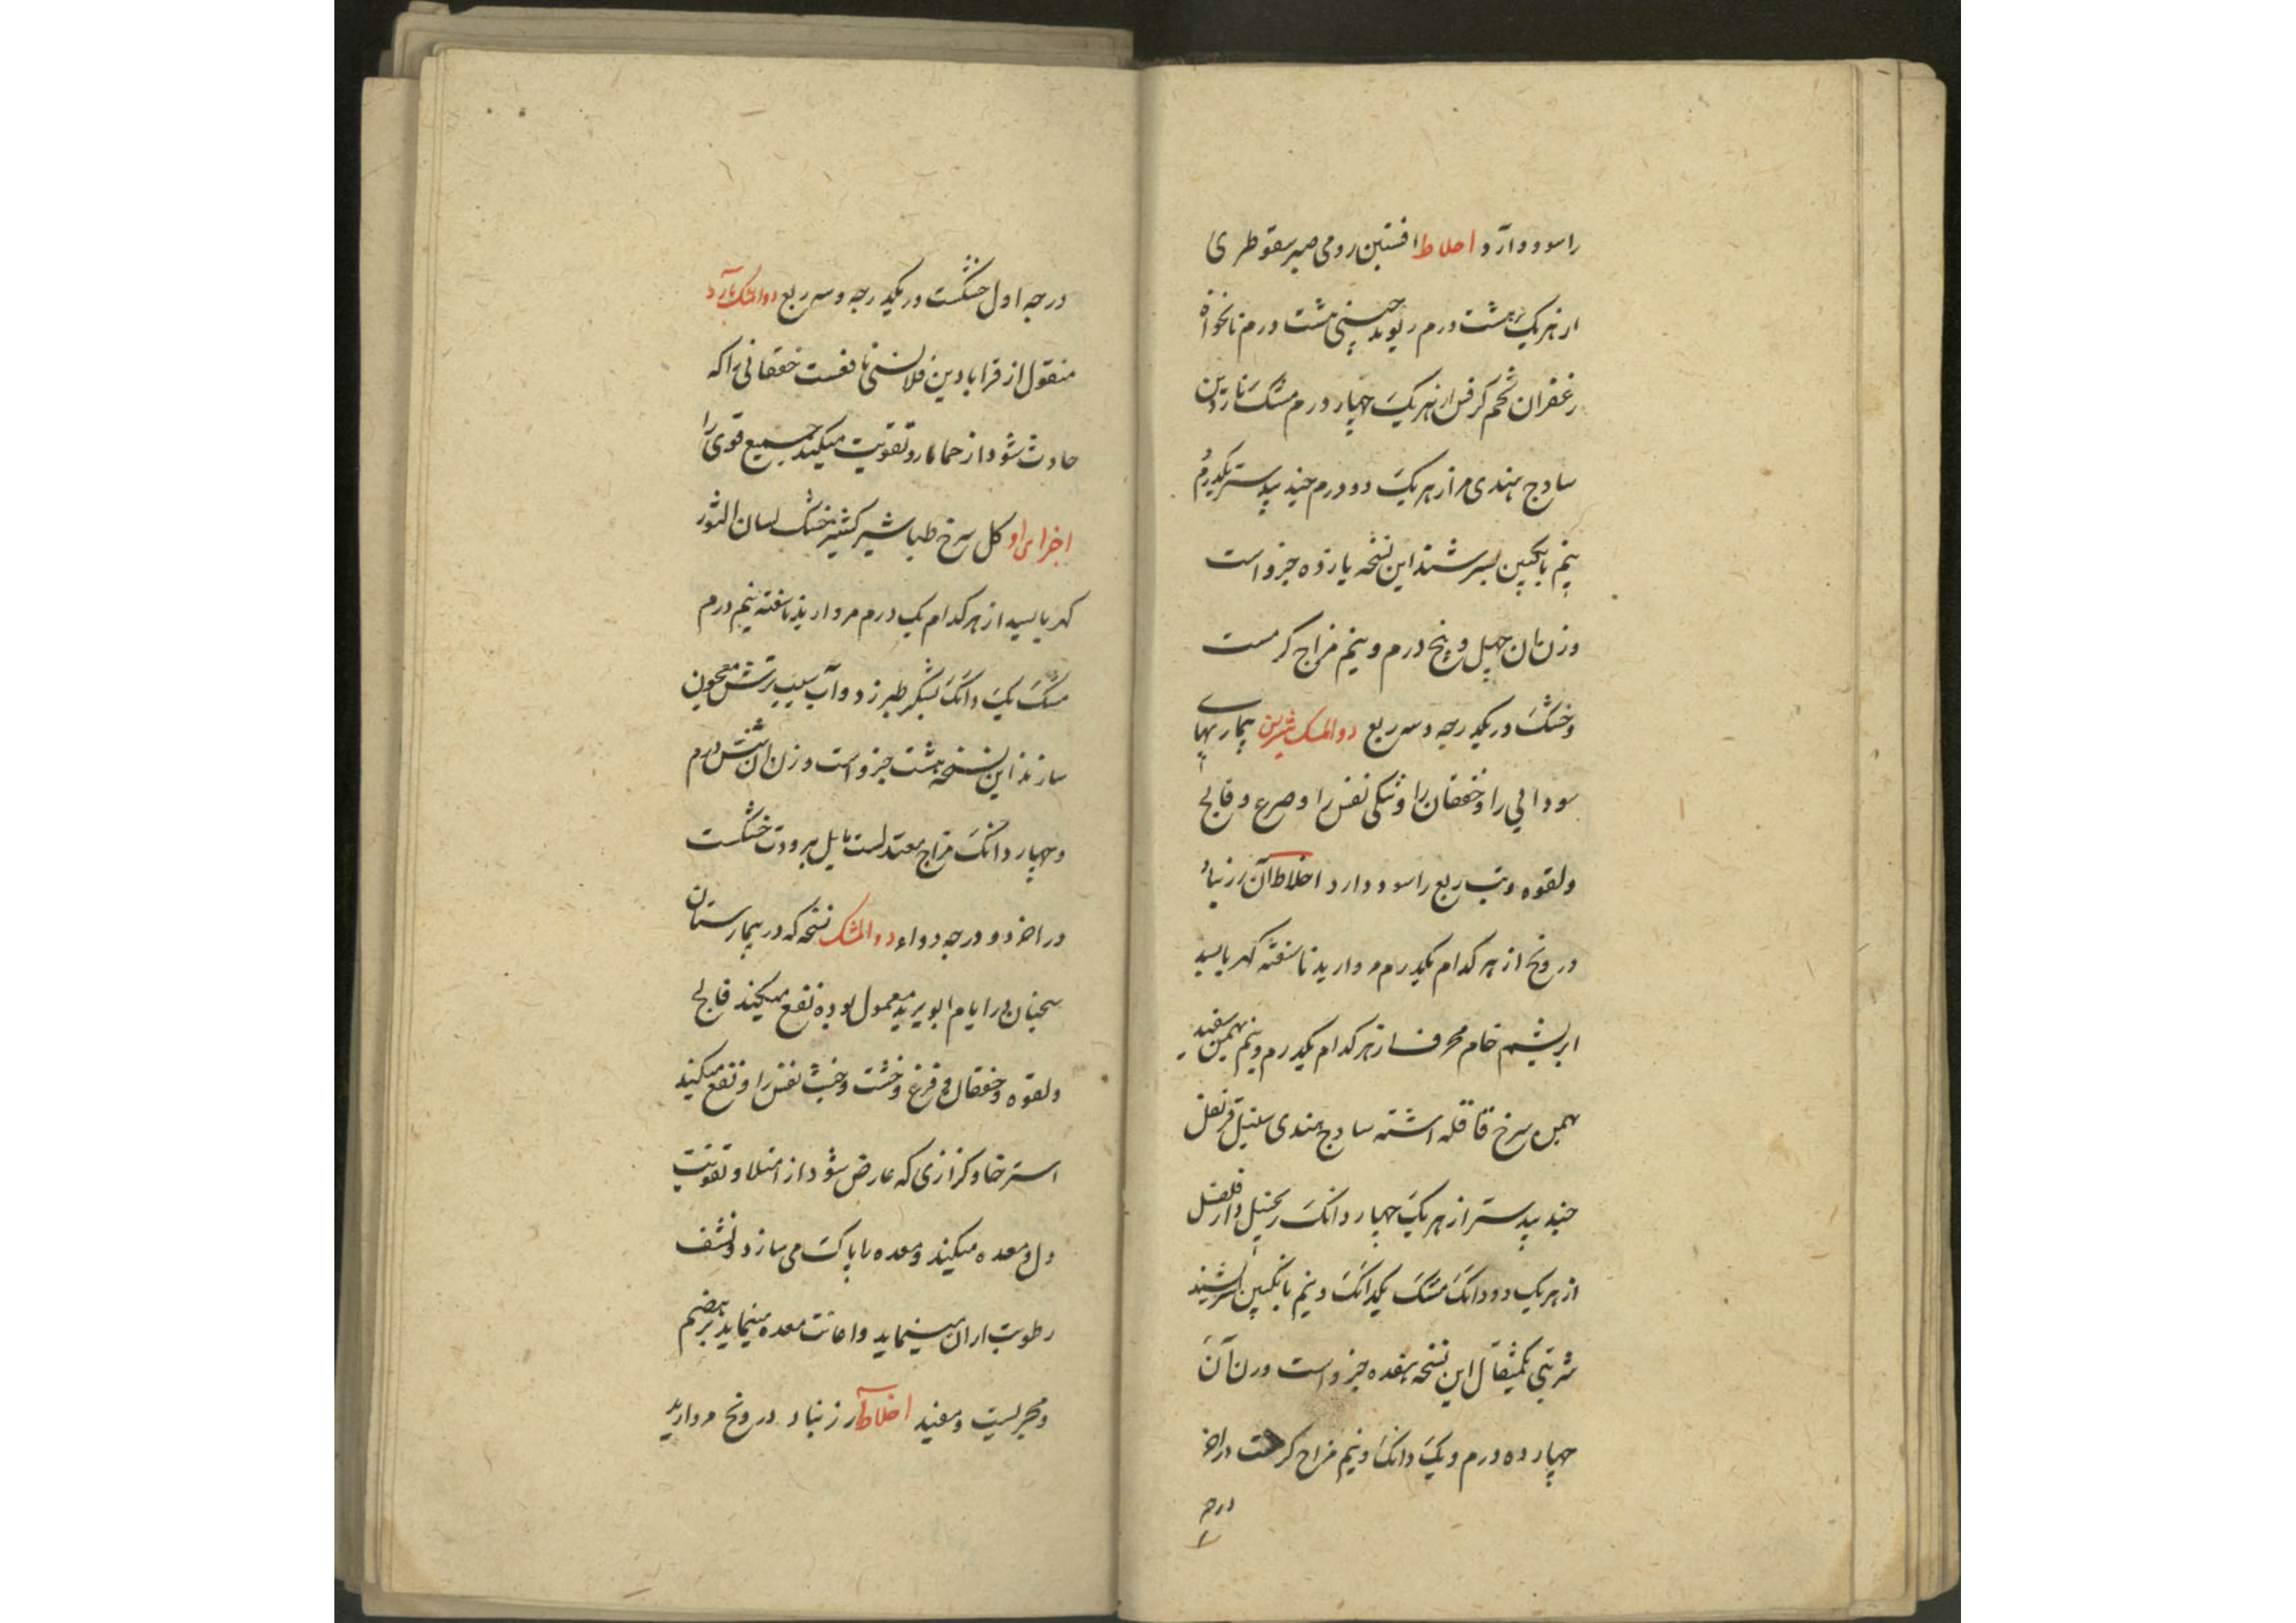 را سود دارد اخلاط افسنتین رومی صبر سقوطری
از هر یک هشت درم ریوند چینی هشت درم نانخواه
زعفران تخم کرفس از هر یک چهار درم مشک ناردین
سادج هندی مر از هر یک دو درم جند بیدستر یکدرم
نیم بانگبین بسرشند این نسخه یازده جزو است
وزن آن چهل و پنج درم و نیم مزاج گرمست
و خشک در یکدرجه و سه ربع دوالمسک شیرین بیماریهای
سودایی را و خفقان را و تنگی نفس را و صرع و فالج
ولقوه و تب ربع را سود دارد اخلاط آن زرنباد
درونج از هر کدام یکدرم مروارید ناسفته کهربا بسد
ابریشم خام محرق از هر کدام یکدرم و نیم بهمن سفید
بهمن سرخ قاقله اشنه سادج هندی سنبل قرنفل
جند بیدستر از هر یک چهار دانگ زنجبیل دارفلفل
از هر یک دو دانگ مشک یکدانگ و نیم بانگبین بسرشند
شربتی یکمثقال این نسخه هفده جزو است وزن آن
چهارده درم و یک دانگ و نیم مزاج گرمست در آخر
درجه
درجه اول خشکست در یکدرجه و سه ربع دوالمشک بارد
منقول از قرابادین قلانسی نافعست خفقانی را که
حادث شود از حما مارد تقویت میکند جمیع قوی را
اجزای او کل سرخ طباشیر کشنیز خشک لسان الثور
کهربا بسد از هر کدام یک درم مروارید ناسفته نیم درم
مشک یک دانگ بشکر طبرزد و آب سیب ترش معجون
سازند این نسخه هشت جزو است وزن آن شش درم
و چهار دانگ مزاج معتدلست مایل ببرودت خشکست
در آخر دو درجه دواء دوالمشک نسخه که در بیمارستان
در ایام ابو یزید معمول بوده نفع میکند فالج
ولقوه و خفقان و فزع و خبث نفس را و نفع میکند
استرخا و کزازی که عارض شود از امتلا و تقویت
دل و معده میکند و معده را پاک می سازد و نشف
رطوبت از آن مینماید و اعانت معده مینماید بر هضم
و مجربست و مفید اخلاط آن زرنباد درونج مروارید